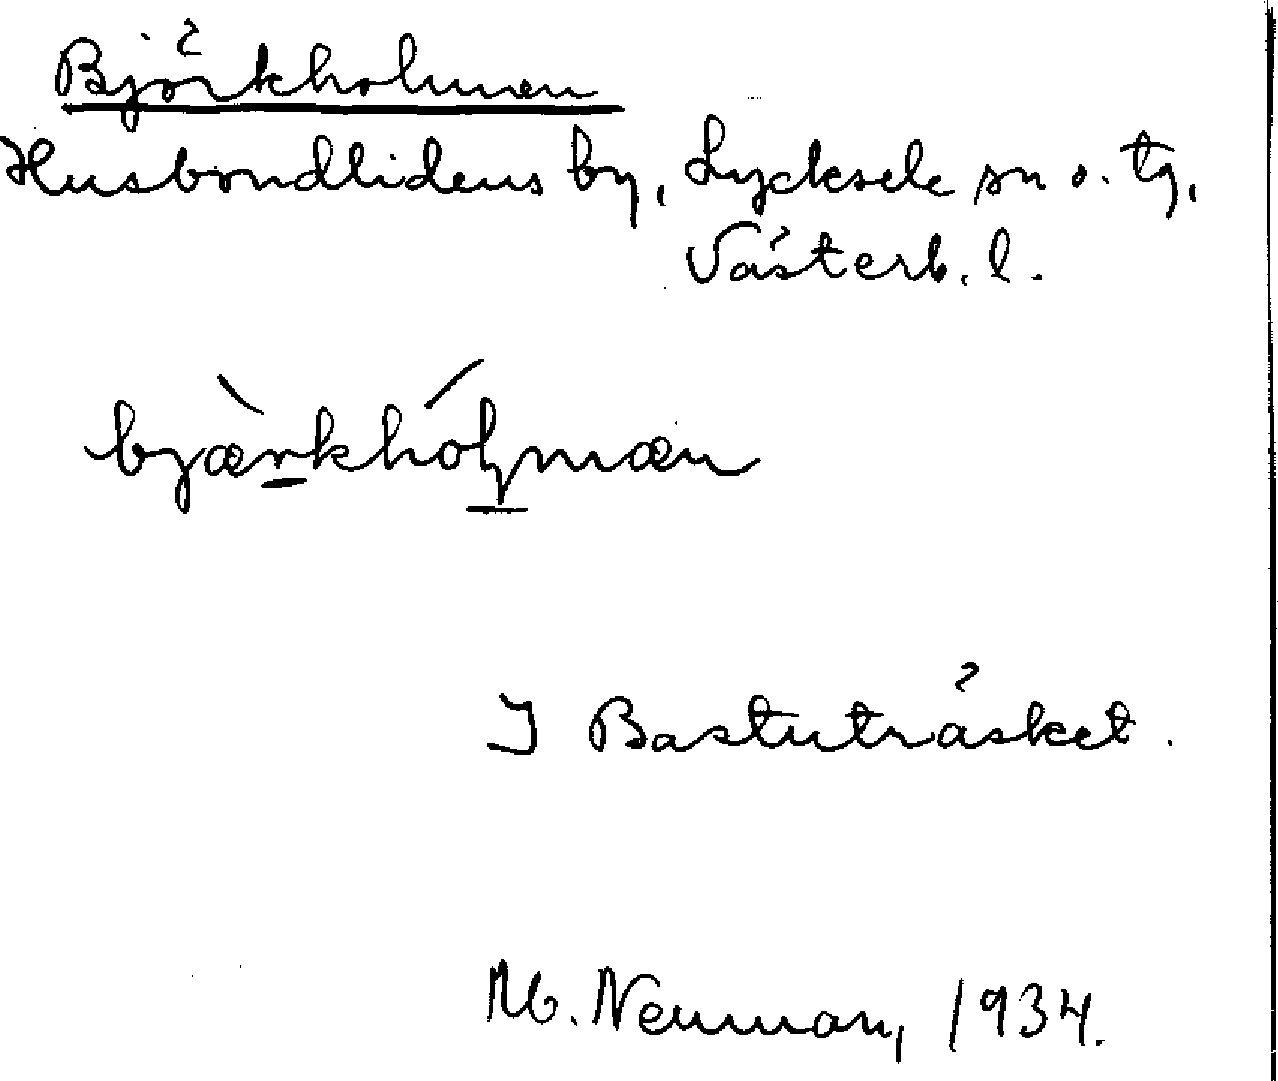 Björkholmen
Husbondlidens by, Lycksele sn o. tg,
Västerb. l.
bjæ̀rkhóļmæn
I Bastuträsket.
M. Neuman, 1934.